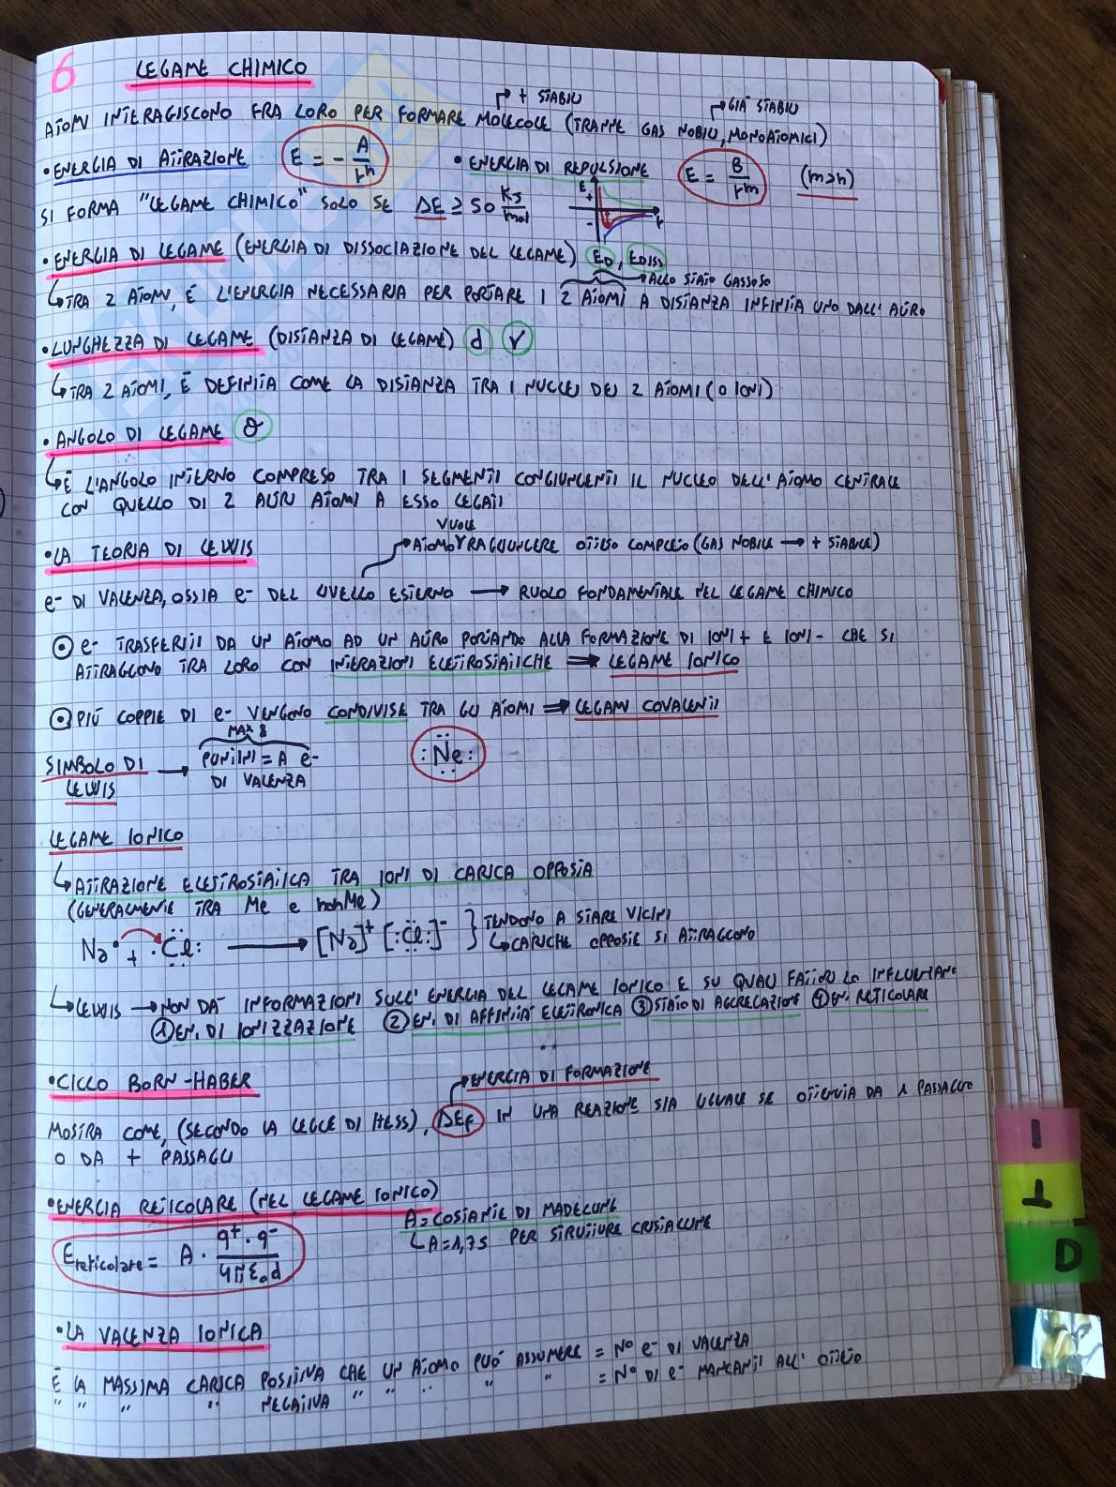 6 LEGAME CHIMICO
→ + STABILI
→ GIÀ STABILI
ATOMI INTERAGISCONO FRA LORO PER FORMARE MOLECOLE (TRANNE GAS NOBILI, MONOATOMICI)
• ENERGIA DI ATTRAZIONE E = - A/rⁿ • ENERGIA DI REPULSIONE E = B/rᵐ (m>n)
SI FORMA "LEGAME CHIMICO" SOLO SE ΔE ≥ 50 KJ/mol E + - r
• ENERGIA DI LEGAME (ENERGIA DI DISSOCIAZIONE DEL LEGAME) ED, EDISS
→ ALLO STATO GASSOSO
↳ TRA 2 ATOMI, È L'ENERGIA NECESSARIA PER PORTARE I 2 ATOMI A DISTANZA INFINITA UNO DALL'ALTRO
• LUNGHEZZA DI LEGAME (DISTANZA DI LEGAME) d r
↳ TRA 2 ATOMI, È DEFINITA COME LA DISTANZA TRA I NUCLEI DEI 2 ATOMI (O IONI)
• ANGOLO DI LEGAME θ
↳ È L'ANGOLO INTERNO COMPRESO TRA I SEGMENTI CONGIUNGENTI IL NUCLEO DELL'ATOMO CENTRALE
CON QUELLO DI 2 ALTRI ATOMI A ESSO LEGATI
VUOLE
• LA TEORIA DI LEWIS → ATOMO RAGGIUNGERE OTTETTO COMPLETO (GAS NOBILE → + STABILE)
e- DI VALENZA, OSSIA e- DEL LIVELLO ESTERNO → RUOLO FONDAMENTALE NEL LEGAME CHIMICO
⊙ e- TRASFERITI DA UN ATOMO AD UN ALTRO PORTANDO ALLA FORMAZIONE DI IONI + E IONI - CHE SI
ATTRAGGONO TRA LORO CON INTERAZIONI ELETTROSTATICHE ⇒ LEGAME IONICO
⊙ PIÙ COPPIE DI e- VENGONO CONDIVISE TRA GLI ATOMI ⇒ LEGAMI COVALENTI
MAX 8
SIMBOLO DI LEWIS → PUNTINI = A e- DI VALENZA :Ne:
LEGAME IONICO
↳ ATTRAZIONE ELETTROSTATICA TRA IONI DI CARICA OPPOSTA
(GENERALMENTE TRA Me e nonMe)
Na• + •Cl: → [Na]⁺ [:Cl:]⁻ } TENDONO A STARE VICINI
↳ CARICHE OPPOSTE SI ATTRAGGONO
↳ LEWIS → NON DÀ INFORMAZIONI SULL'ENERGIA DEL LEGAME IONICO E SU QUALI FATTORI LO INFLUENZANO
① EN. DI IONIZZAZIONE ② EN. DI AFFINITÀ ELETTRONICA ③ STATO DI AGGREGAZIONE ④ EN. RETICOLARE
• CICLO BORN-HABER → ENERGIA DI FORMAZIONE
MOSTRA COME, (SECONDO LA LEGGE DI HESS), ΔEf IN UNA REAZIONE SIA UGUALE SE OTTENUTA DA 1 PASSAGGIO
O DA + PASSAGGI
• ENERGIA RETICOLARE (NEL LEGAME IONICO)
Ereticolare = A · q⁺·q⁻/4πε₀d A = COSTANTE DI MADELUNG
↳ A=1,75 PER STRUTTURE CRISTALLINE
• LA VALENZA IONICA
È LA MASSIMA CARICA POSITIVA CHE UN ATOMO PUÒ ASSUMERE = N° e- DI VALENZA
" " " " NEGATIVA " " " " " = N° DI e- MANCANTI ALL'OTTETTO
I
⊥
D